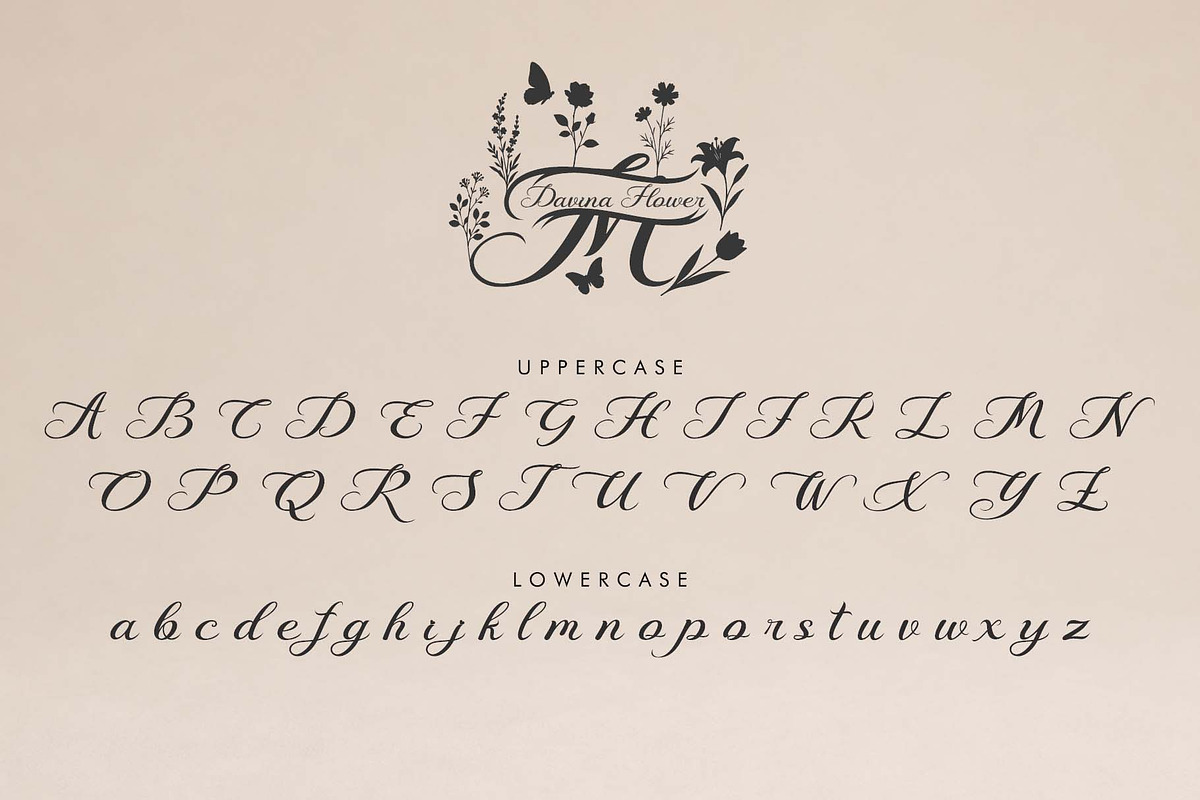 Davina Flower
M
UPPERCASE
A B C D E F G H I F R L M N
O P Q R S T U V W X Y Z
LOWERCASE
a b c d e f g h i j k l m n o p o r s t u v w x y z